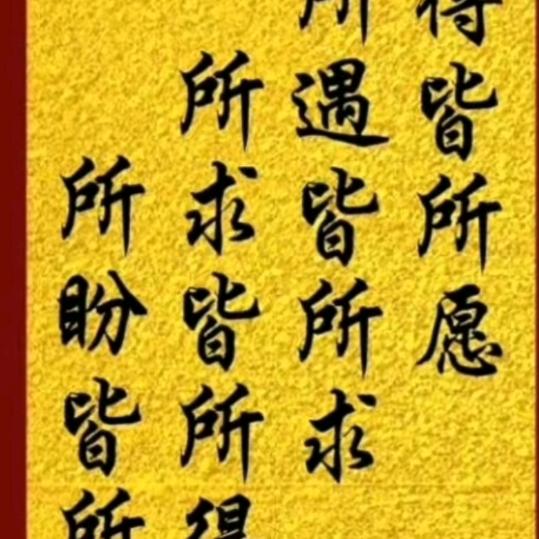 得皆所愿
所遇皆所求
所求皆所得
所盼皆所